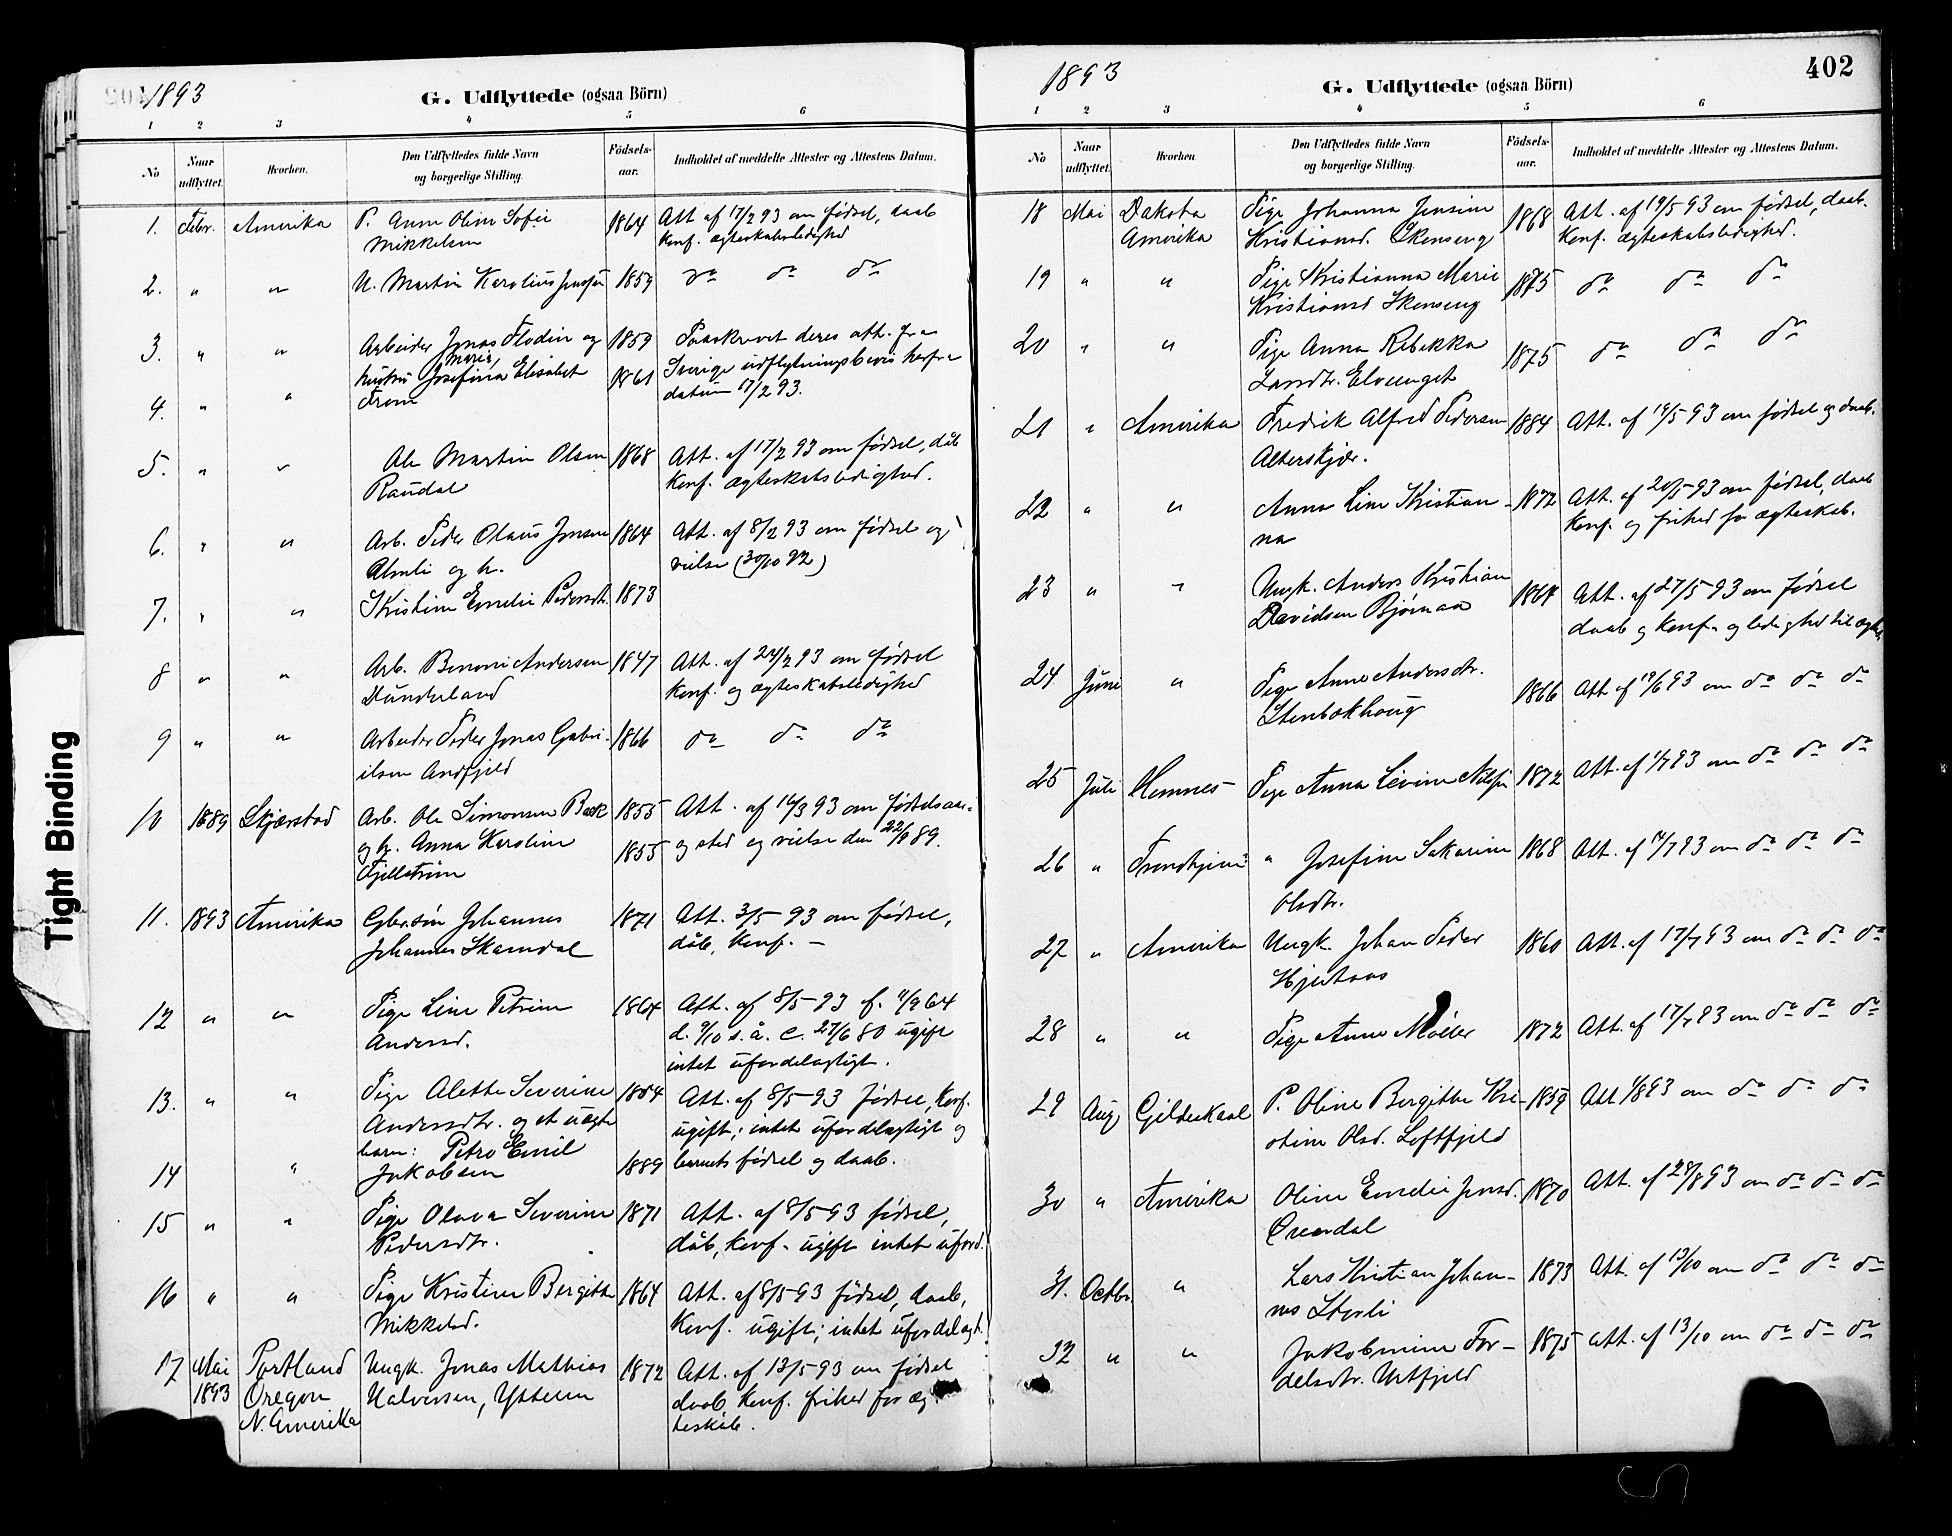 1893
G. Udflyttede (ogsaa Börn)
1 2 3 4 5 6
No
Naar udflyttet.
Hvorhen.
Den Udflyttedes fulde Navn og borgerlige Stilling.
Fødsels-aar.
Indholdet af meddelte Attester og Attestens Datum.
1. Febr. Amerika P. Anne Oline Sofie 1864 Att af 17/2 93 om fødsel, daab
Mikkelsen Konf. ægteskabsledighed
2. " " U. Martin Karolius Jensen 1859 do do do
3. " " Arbeider Jonas Flodin og 1859 Paaskrevet deres att. fra
Maria,
hustru Josefina Elisabet 1861 Sverige udflytningsbevis herfra
4. " " From datum 17/2 93.
5. " " Ole Martin Olsen 1868 Att. af 17/2 93 om fødsel, dåb
Raudal Konf. ægteskabsledighed.
6. " " Arb. Peder Olaus Jensen 1864 Att. af 8/2 93 om fødsel og
Almli og h. vielse (30/10 92)
7. " " Kristine Emelie Pedersdtr. 1873
8 " " Arb. Benoni Andersen 1847 Att. af 24/2 93 om fødsel
Dunderland Konf. og ægteskabsledighed
9 " " Arbeider Peder Jonas Gabri- 1866 do do do
elsen Andfjeld
10 1889 Skjerstad Arb. Ole Simonsen Bæk 1855 Att. af 16/3 93 om fødselsaar
og h. Anna Karoline 1855 og sted og vielse den 22/9 89.
Fjellstrøm
11. 1893 Amerika Gbr.søn Johannes 1871 Att. 3/5 93 om fødsel,
Johannes Skamdal dåb, Konf. –
12 " " Pige Line Petrine 1864 Att. af 8/5 93 f. 4/9 64
Andersd. d. 9/10 s. å. c. 27/6 80 ugift
intet ufordelagtigt.
13. " " Pige Alette Severine 1864 Att. af 8/5 93 fødsel, Konf.
Andersdtr. og et uægte ugift; intet ufordelagtigt og
barn: Petro Emil
14 " Jakobsen 1889 barnets fødsel og daab.
15 " " Pige Olava Severine 1871 Att. af 8/5 93 fødsel,
Pedersdtr. dåb, Konf. ugift intet uford.
16 " " Pige Kristine Bergitte 1864 Att. af 8/5 93 fødsel, daab,
Mikkelsd. Konf. ugift; intet ufordelagt.
17 Mai Portland Ungk. Jonas Mathias 1872 Att. af 13/5 93 om fødsel
1893 Oregon Halvorsen, Ytteren daab, Konf. frihed for æg-
N. Amerika teskab.
1893
402
G. Udflyttede (ogsaa Börn)
1 2 3 4 5 6
No
Naar udflyttet.
Hvorhen.
Den Udflyttedes fulde Navn og borgerlige Stilling.
Fødsels-aar.
Indholdet af meddelte Attester og Attestens Datum.
18 Mai Dakota Pige Johanna Jensine 1868 Att. af 19/5 93 om fødsel, daab.
Amerika Kristiansd. Skenseng Konf. ægteskabsledighed.
19 " " Pige Kristianna Marie 1875 do do do
Kristiansd Skenseng
20 " " Pige Anna Rebekka 1875 do do do
Larsdtr. Elvenget
21 " Amerika Fredrik Alfred Pedersen 1884 Att. af 19/5 93 om fødsel og daab.
Alterskjær.
22 " " Anna Line Kristian- 1872 Att. af 20/5 93 om fødsel, daab
na Konf. og frihed for ægteskab.
23 " " Ungk. Anders Kristian 1864 Att. af 27/5 93 om fødsel
Davidsen Bjørnaa daab og Konf. og ledighed til ægte
24 Juni " Pige Anne Andersdtr. 1866 Att af 19/6 93 om do do do
Stenbakhaug
25 Juli Hemnes Pige Anna Levine Nilsen 1872 Att. af 1/7 93 om do do do
26 " Trondhjem " Josefine Sakarine 1868 Att. af 14/7 93 om do do do
Olsdtr.
27 " Amerika Ungk. Johan Peder 1860 Att. af 17/7 93 om do do do
Hjertaas
28 " " Pige Anne Møller 1872 Att. af 17/7 93 om do do do
29 Aug Gildeskaal P. Oline Bergitte Kri- 1859 Att 1/8 93 om do do do
stine Olsd. Loftfjeld
30 " Amerika Oline Emelie Jensd. 1870 Att. af 28/8 93 om do do do
Grændal
31. Octbr. " Lars Kristian Johan- 1873 Att. af 13/10 om do do do
nes Storli
32 " " Jakobmine Tor- 1875 Att. af 13/10 om do do do
delsdtr. Urtfjeld
Tight Binding